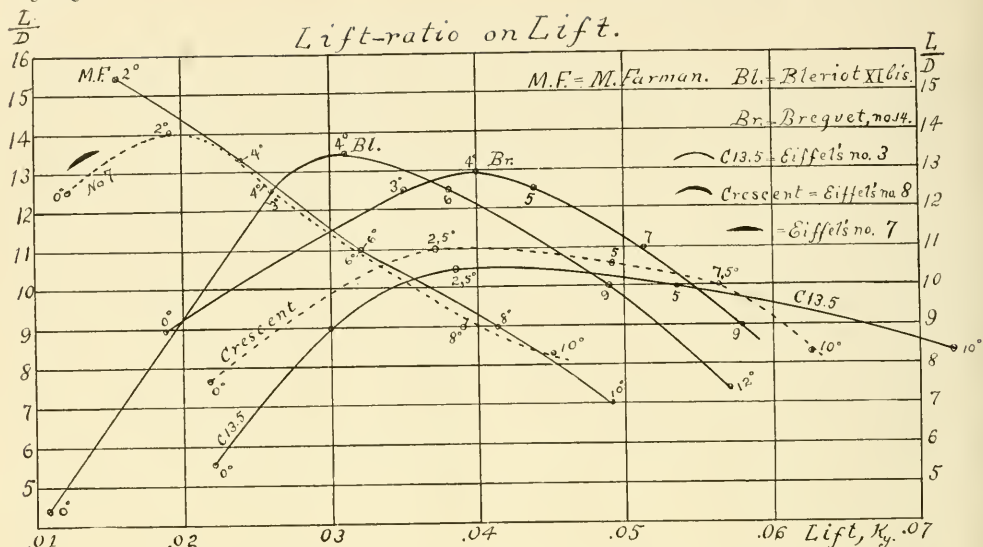 Lift-ratio on Lift.
L/D
L/D
M.F. = M. Farman. Bl. = Bleriot XI bis.
Br. = Breguet, no. 14.
C13.5 = Eiffel's no. 3
Crescent = Eiffel's no. 8
= Eiffel's no. 7
16
15
14
13
12
11
10
9
8
7
6
5
15
14
13
12
11
10
9
8
7
6
5
M.F. 2°
2°
No 7
0°
4°
4°
3°
4° Bl.
4° Br.
3°
6
5
6°
6°
2,5°
7
5
7,5°
2,5°
9
5
C13.5
0°
8°
8°
9
10°
10°
10°
Crescent
0°
10°
12°
C13.5
0°
0°
.01 .02 .03 .04 .05 .06 Lift, Ky. .07